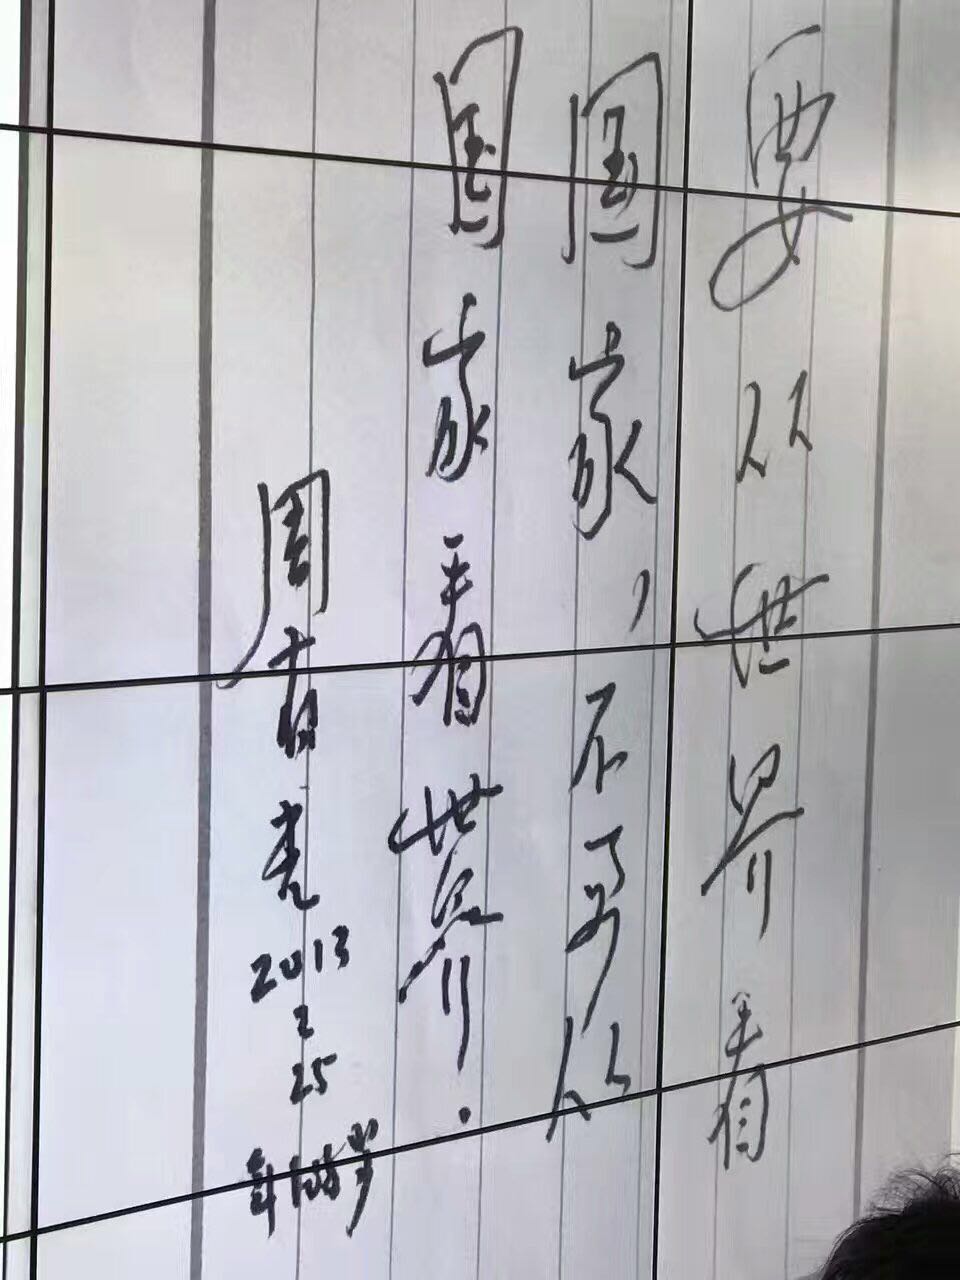 要从世界看
国家，不要从
国家看世界.
周有光
2013
2
25
年108岁